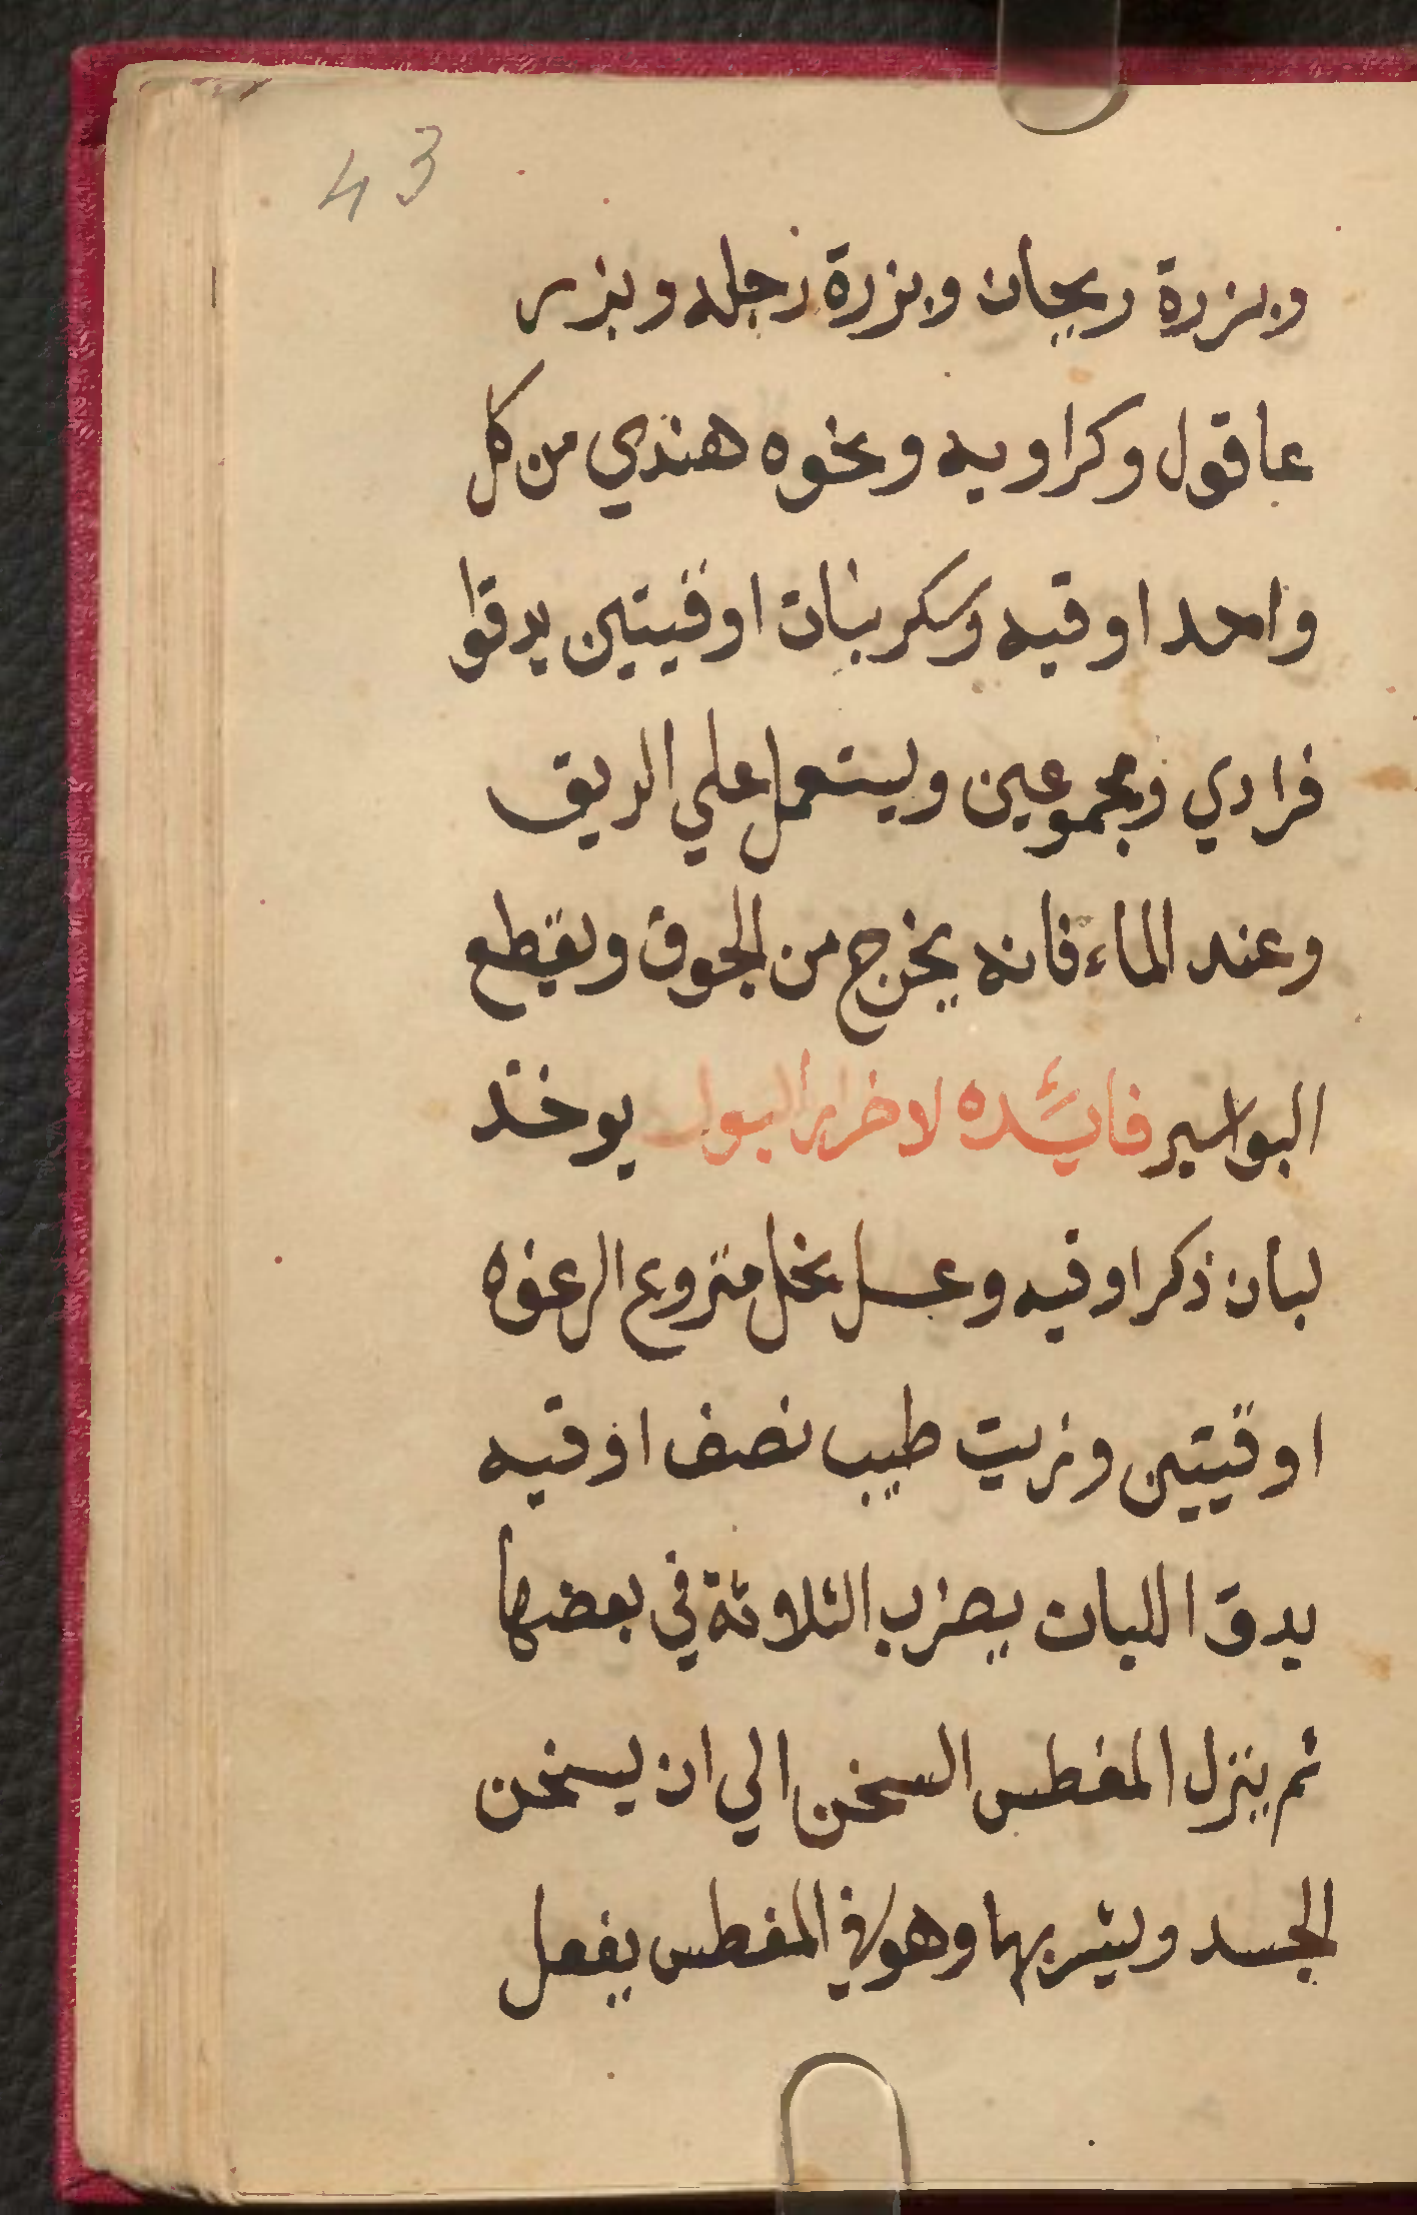 43
وبزرة ريحان وبزرة رجله وبزر
عاقول وكراويه ونخوه هندي من كل
واحد اوقيه وسكر نبات اوقيتين يدقوا
فرادي ومجموعين ويستعمل علي الريق
وعند الماء فانه يخرج من الجوف ويقطع
البواسير فايئده لاخرار البول يوخذ
لبان ذكر اوقيه وعسل نحل منزوع الرغوه
اوقيتين وزيت طيب نصف اوقيه
يدق اللبان يضرب الثلاوثة في بعضها
ثم ينزل المغطس السخن الي ان يسخن
الجسد ويشربها وهو في المغطس يفعل